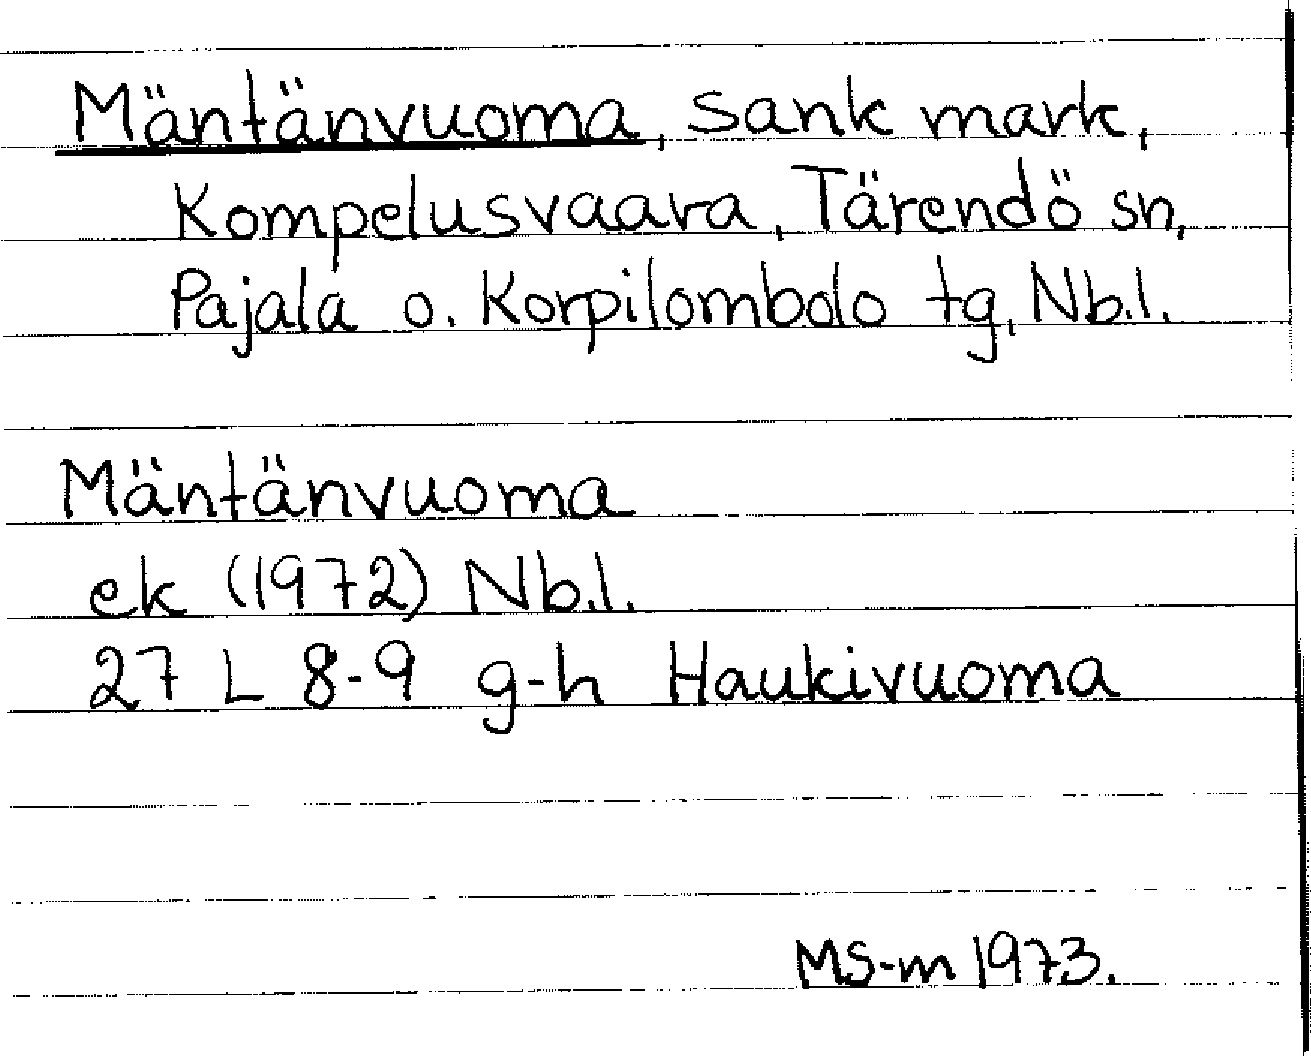 Mäntänvuoma, sank mark,
Kompelusvaara, Tärendö sn,
Pajala o. Korpilombolo tg, Nb.l.
Mäntänvuoma
ek (1972) Nb.l.
27 L 8-9 g-h Haukivuoma
MS-m 1973.